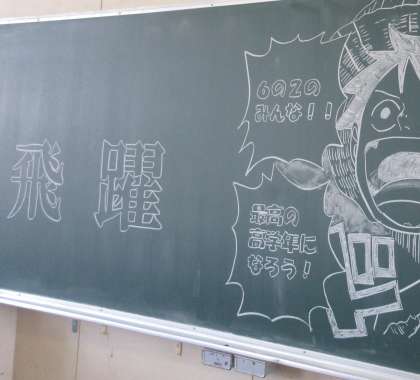 飛躍
6の2の
みんな!!
最高の
高学年に
なろう!